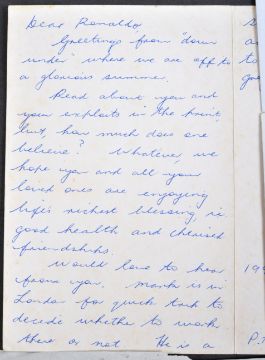 Dear Ronaldo,
Greetings from "down
under" where we are off to
a glorious summer.
Read about you and
your exploits in the print
but, how much does one
believe? Whatever, we
hope you and all your
loved ones are enjoying
life's richest blessing, i.e.
good health and cherised
friendships.
Would love to hear
from you. Mark is in
London for quick task to
decide whether to work
there or not. He is a
S
a
to
goo
199
P.